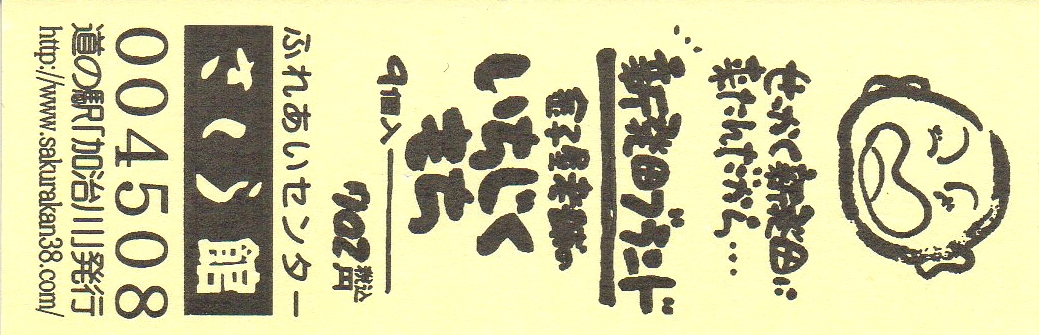 せっかく新発田に
来たんだから…
新発田ブランド
いちじく
9個入
702円
税込
ふれあいセンター
さくら館
004508
道の駅「加治川」発行
http://www.sakurakan38.com/